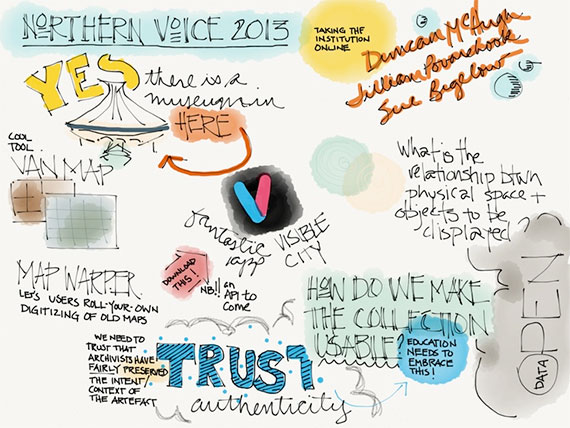 NORTHERN VOICE 2013
TAKING THE
INSTITUTION
ONLINE
Duncan McHugh
Jillian Povarchook
Sue Bigelow
YES
there is a
museum in
HERE
COOL
TOOL.
VAN MAP
V
fantastic
app
VISIBLE
CITY
What is the
relationship btwn
physical space +
objects to be
displayed
MAP WARPER.
LET'S USERS ROLL-YOUR-OWN
DIGITIZING OF OLD MAPS
DOWNLOAD
THIS!
NB!! an
API to
come
HOW DO WE MAKE
THE COLLECTION
USABLE?
EDUCATION
NEEDS TO
EMBRACE
THIS!
OPEN
DATA
WE NEED TO
TRUST THAT
ARCHIVISTS HAVE
FAIRLY PRESERVED
THE INTENT/
CONTEXT OF
THE ARTEFACT
TRUST
authenticity